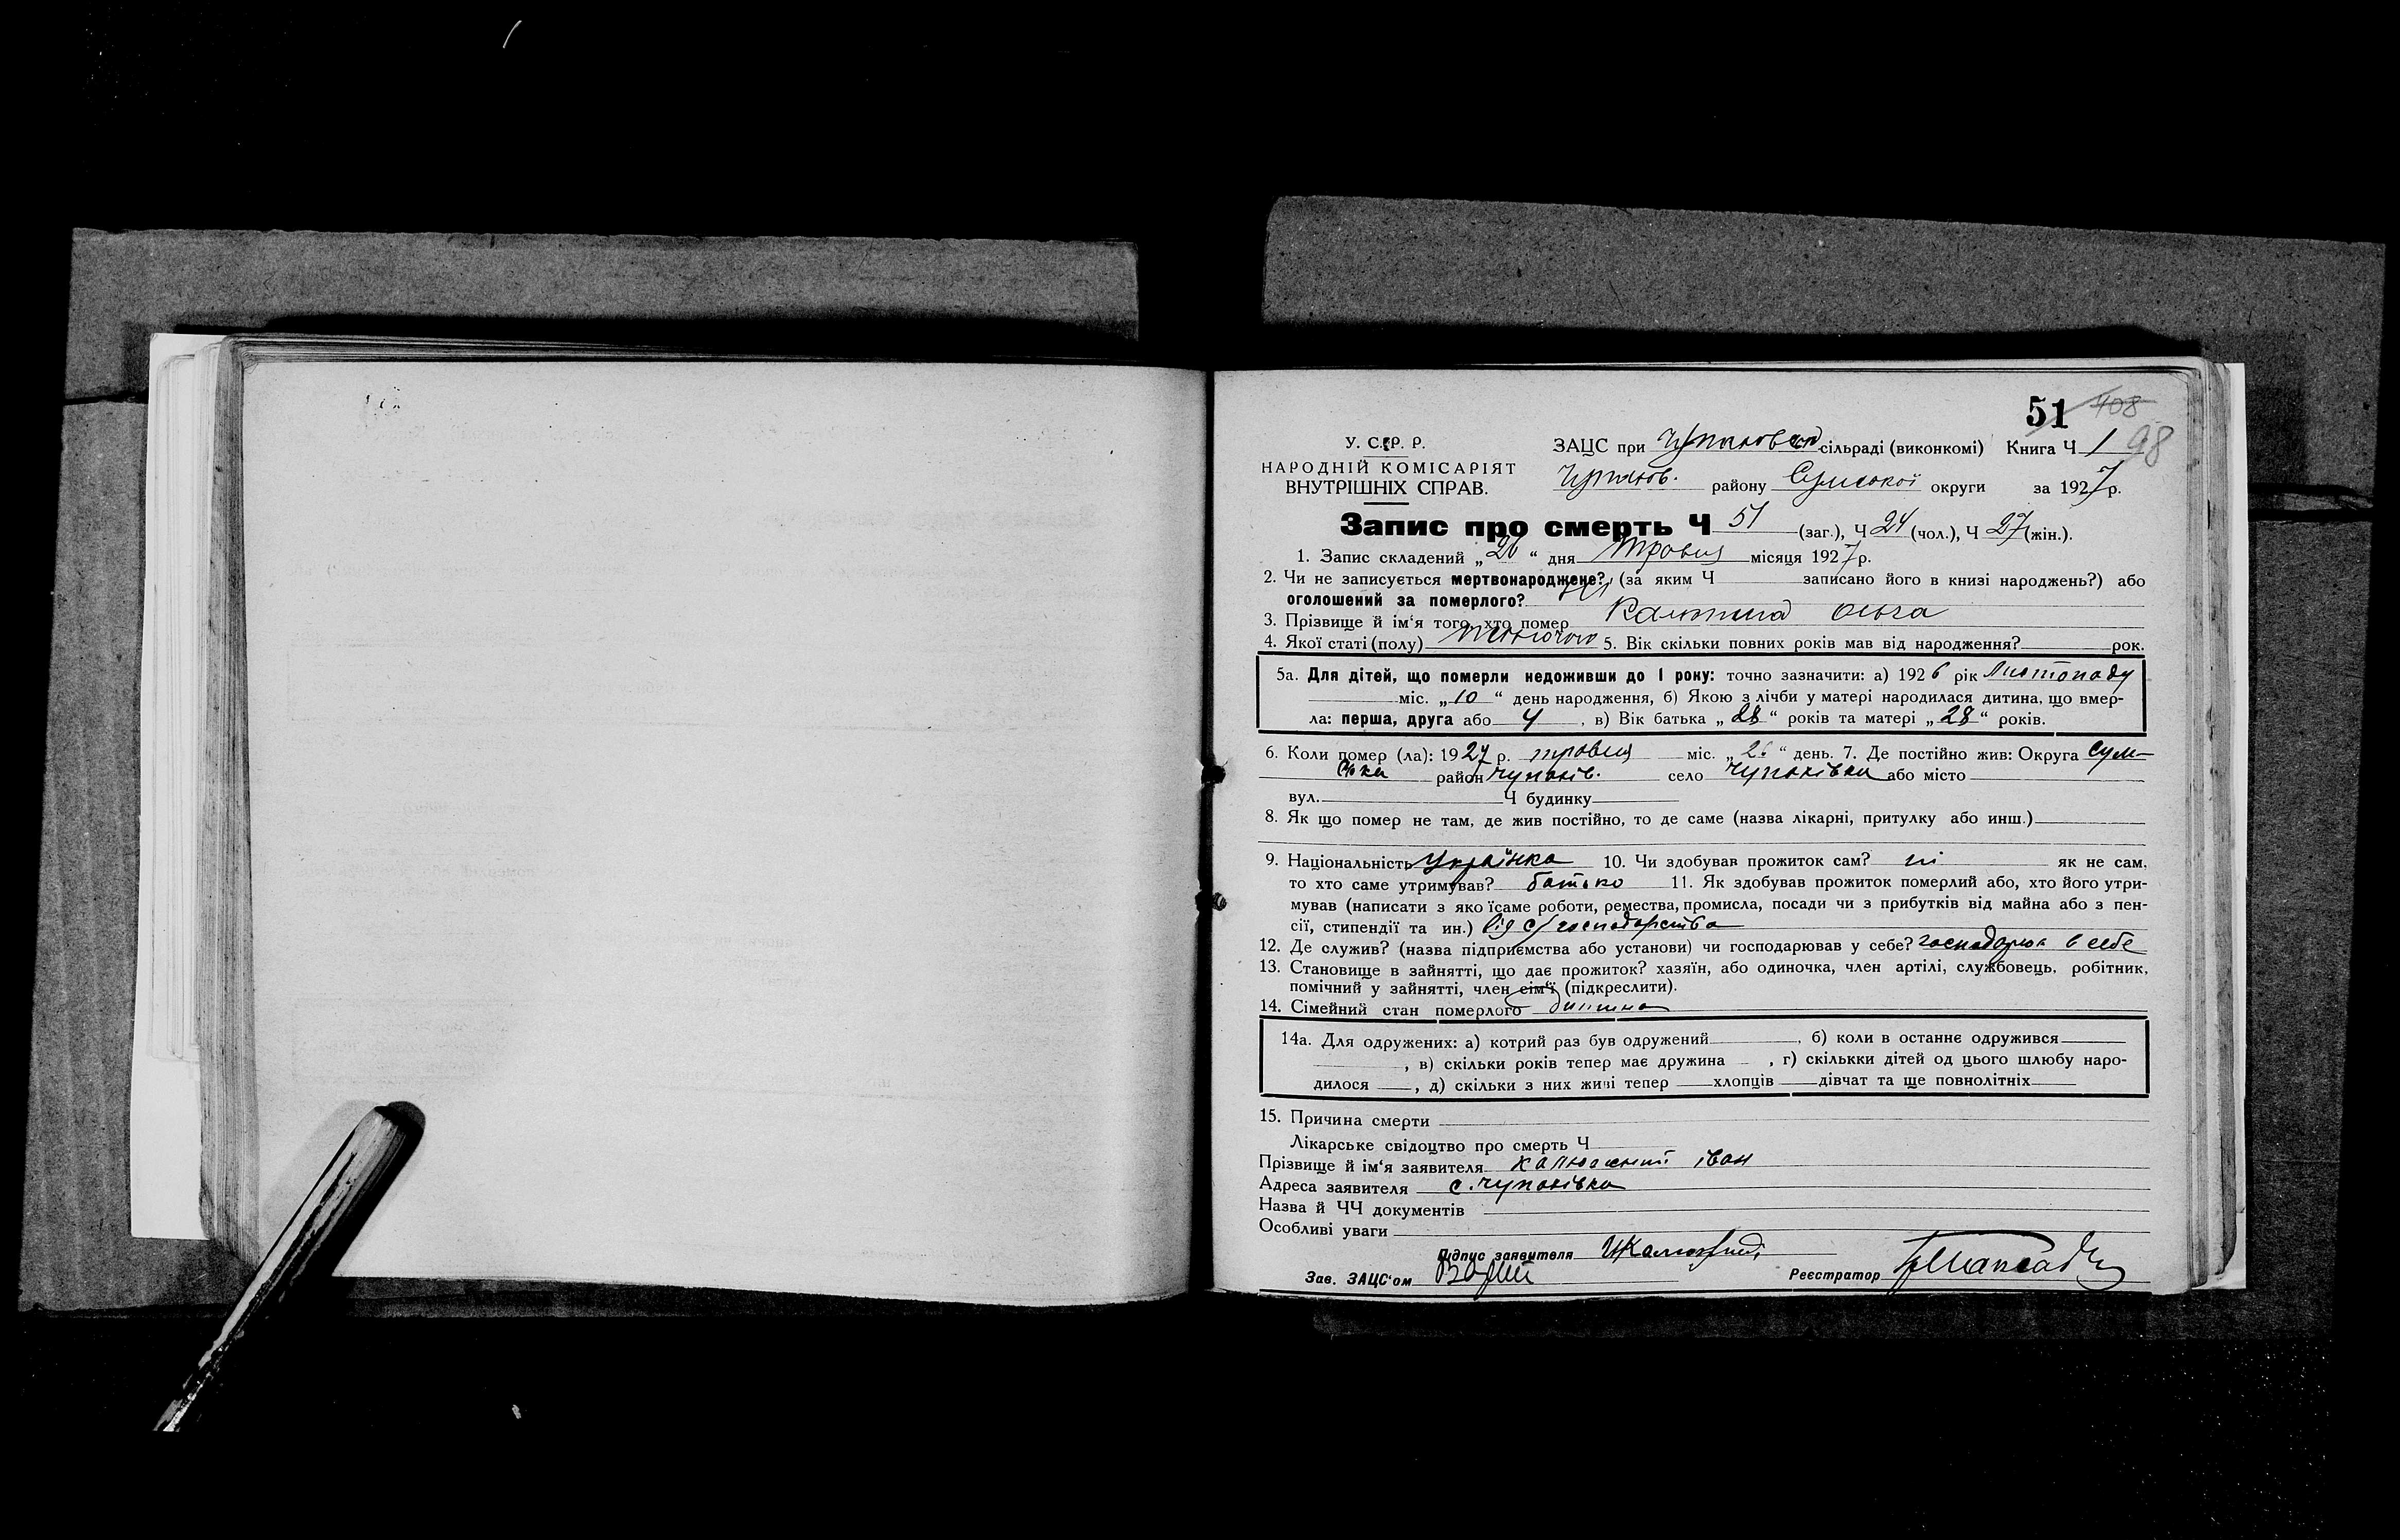 51 408
98
У. С. Р. Р.
НАРОДНІЙ КОМІСАРІЯТ
ВНУТРІШНІХ СПРАВ.
ЗАЦС при сільраді (виконкомі) Книга Ч 1
Чупахів. району Сумської округи за 1927 р.
Запис про смерть Ч 51 (заг.), Ч 24 (чол.), Ч 27 (жін.).
1. Запис складений „26“ дня травня місяця 1927 р.
2. Чи не записується мертвонароджене? (за яким Ч записано його в книзі народжень?) або
оголошений за померлого? ні
3. Прізвище й ім‘я того, хто помер Ольга
4. Якої статі (полу) жіночого 5. Вік скільки повних років мав від народження? рок.
5а. Для дітей, що померли недоживши до 1 року: точно зазначити: а) 1926 рік Листопаду
міс. „10“ день народження, б) Якою з лічби у матері народилася дитина, що вмер-
ла: перша, друга або 4, в) Вік батька „28“ років та матері „28“ років.
6. Коли помер (ла): 1927 р. травня міс. „26“ день. 7. Де постійно жив: Округа Сум-
ська район Чупахів. село Чупахівка або місто
вул. Ч будинку
8. Як що помер не там, де жив постійно, то де саме (назва лікарні, притулку або инш.)
9. Національність Українка 10. Чи здобував прожиток сам? ні як не сам,
то хто саме утримував? батько 11. Як здобував прожиток померлий або, хто його утри-
мував (написати з яко їсаме роботи, ремества, промисла, посади чи з прибутків від майна або з пен-
сії, стипендії та ин.) від с/господарства
12. Де служив? (назва підприємства або установи) чи господарював у себе? господарює в себе
13. Становище в зайнятті, що дає прожиток? хазяїн, або одиночка, член артілі, службовець, робітник,
помічний у зайнятті, член сім‘ї (підкреслити).
14. Сімейний стан померлого дитина
14а. Для одружених: а) котрий раз був одружений , б) коли в останнє одружився
, в) скільки років тепер має дружина , г) скількки дітей од цього шлюбу наро-
дилося , д) скільки з них живі тепер хлопців дівчат та ще повнолітніх
15. Причина смерти
Лікарське свідоцтво про смерть Ч
Прізвище й ім‘я заявителя Калюжний іван
Адреса заявителя с. Чупахівка
Назва й ЧЧ документів
Особливі уваги
Підпис заявителя ИКалюжний
Зав. ЗАЦС‘ом Реєстратор